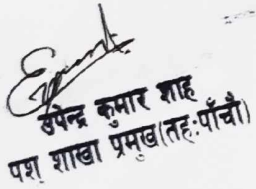 उपेन्द्र कुमार शाह
पशु शाखा प्रमुख(तह:पाँचौ)